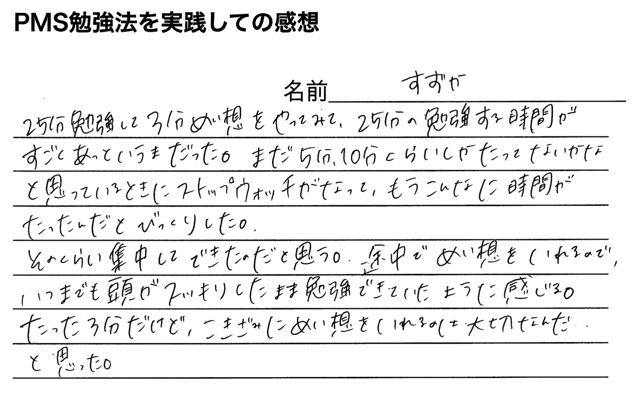 PMS勉強法を実践しての感想
名前 すずか
25分勉強して3分めい想をやってみて、25分の勉強する時間が
すごくあっというまだった。まだ5分、10分くらいしかたってないかな
と思っているときにストップウォッチがなって、もうこんなに時間が
たったんだとびっくりした。
そのくらい集中してできたのだと思う。途中でめい想をいれるので、
いつまでも頭がスッキリしたまま勉強できていたように感じる。
たった3分だけど、こきざみにめい想をいれるのは大切なんだ
と思った。